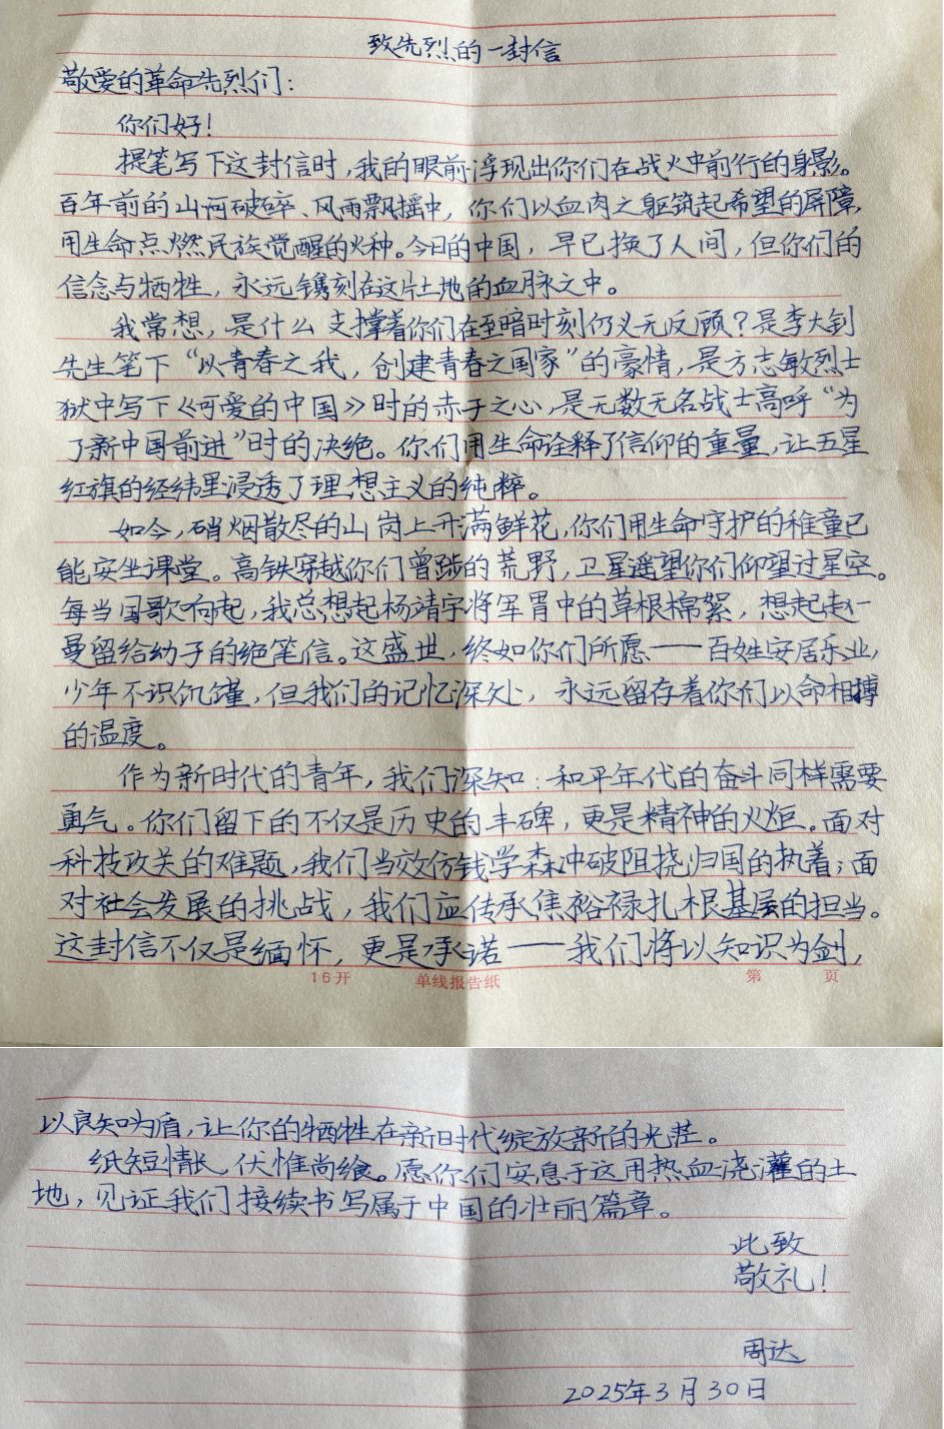 致先烈的一封信
敬爱的革命先烈们:
你们好!
提笔写下这封信时,我的眼前浮现出你们在战火中前行的身影。
百年前的山河破碎、风雨飘摇中,你们以血肉之躯筑起希望的屏障,
用生命点燃民族觉醒的火种。今日的中国,早已换了人间,但你们的
信念与牺牲,永远镌刻在这片土地的血脉之中。
我常想,是什么支撑着你们在至暗时刻仍义无反顾?是李大钊
先生笔下“以青春之我,创建青春之国家”的豪情,是方志敏烈士
狱中写下《可爱的中国》时的赤子之心,是无数无名战士高呼“为
了新中国前进”时的决绝。你们用生命诠释了信仰的重量,让五星
红旗的经纬里浸透了理想主义的纯粹。
如今,硝烟散尽的山岗上开满鲜花,你们用生命守护的稚童已
能安坐课堂。高铁穿越你们曾跋涉的荒野,卫星遥望你们仰望过星空。
每当国歌响起,我总想起杨靖宇将军胃中的草根棉絮,想起赵一
曼留给幼子的绝笔信。这盛世,终如你们所愿——百姓安居乐业,
少年不识饥馑,但我们的记忆深处,永远留存着你们以命相搏
的温度。
作为新时代的青年,我们深知:和平年代的奋斗同样需要
勇气。你们留下的不仅是历史的丰碑,更是精神的火炬。面对
科技攻关的难题,我们当效仿钱学森冲破阻挠归国的执着;面
对社会发展的挑战,我们应传承焦裕禄扎根基层的担当。
这封信不仅是缅怀,更是承诺——我们将以知识为剑,
16开 单线报告纸 第 页
以良知为盾,让你的牺牲在新时代绽放新的光芒。
纸短情长,伏惟尚飨。愿你们安息于这用热血浇灌的土
地,见证我们接续书写属于中国的壮丽篇章。
此致
敬礼!
周达
2025年3月30日